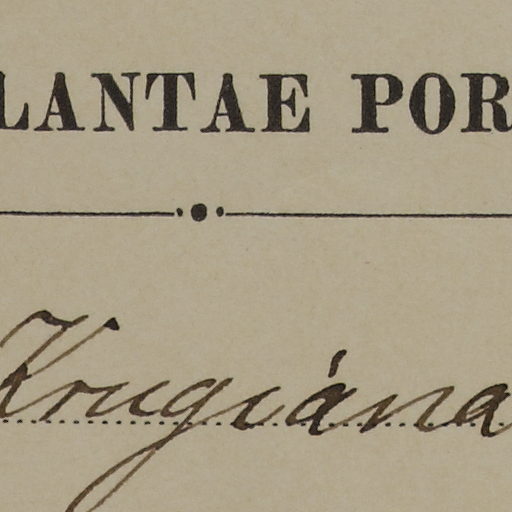 LANTAE POR
Krugiána